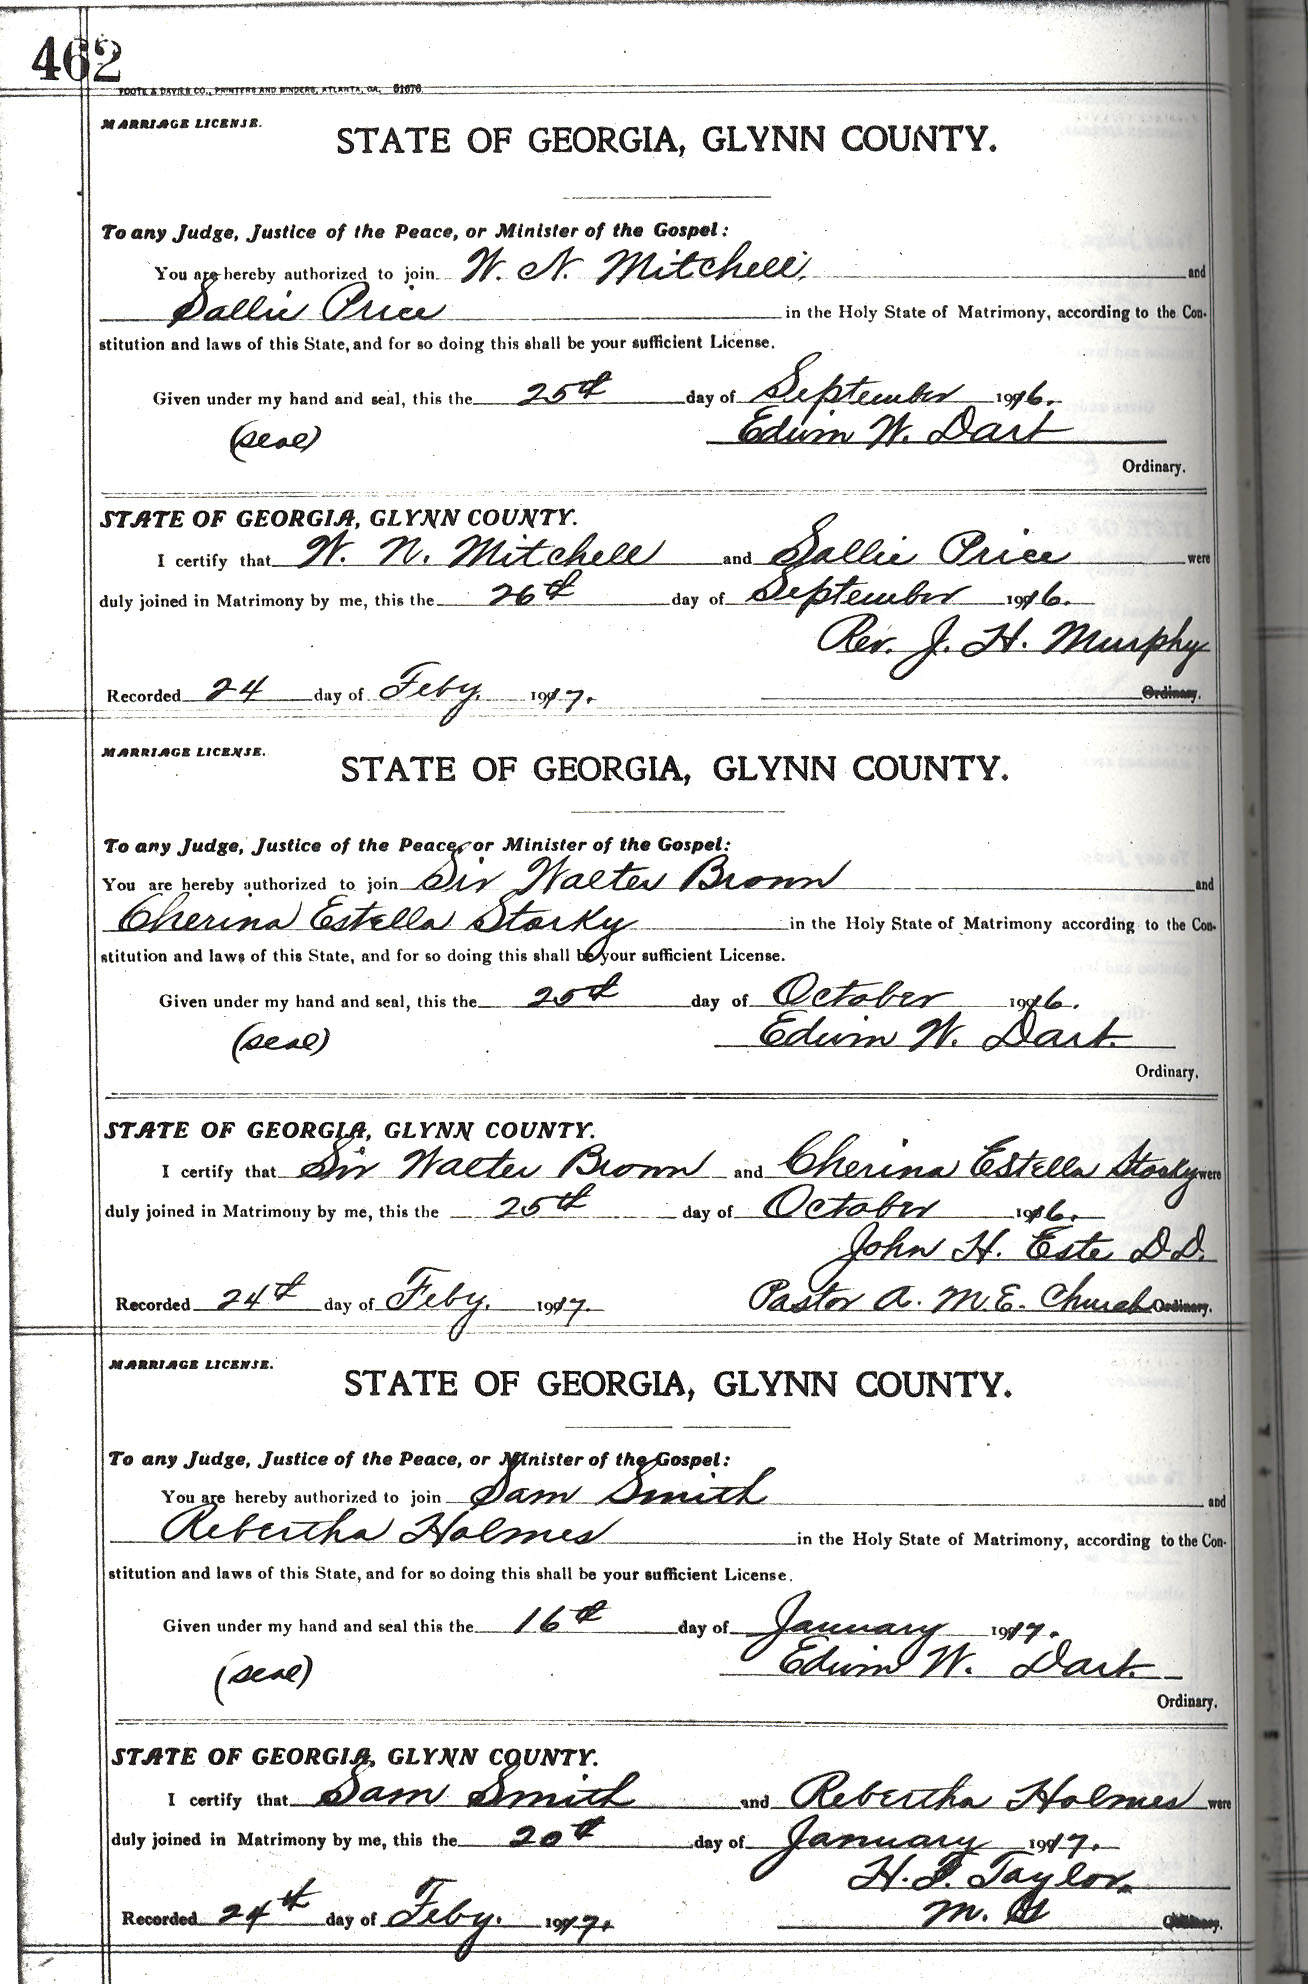 462
FOOTE & DAVIES CO., PRINTERS AND BINDERS, ATLANTA, GA. 61676
MARRIAGE LICENSE.
STATE OF GEORGIA, GLYNN COUNTY.
To any Judge, Justice of the Peace, or Minister of the Gospel:
You are hereby authorized to join W. N. Mitchell, and
Sallie Price in the Holy State of Matrimony, according to the Con-
stitution and laws of this State, and for so doing this shall be your sufficient License.
Given under my hand and seal, this the 25th day of September 1916.
(seal) Edwin W. Dart
Ordinary.
STATE OF GEORGIA, GLYNN COUNTY.
I certify that W. N. Mitchell and Sallie Price were
duly joined in Matrimony by me, this the 26th day of September 1916.
Rev. J. H. Murphy
Recorded 24 day of Feby. 1917. Ordinary.
MARRIAGE LICENSE.
STATE OF GEORGIA, GLYNN COUNTY.
To any Judge, Justice of the Peace, or Minister of the Gospel:
You are hereby authorized to join Sir Walter Brown and
Cherina Estella Storky in the Holy State of Matrimony according to the Con-
stitution and laws of this State, and for so doing this shall be your sufficient License.
Given under my hand and seal, this the 25th day of October 1916.
(seal) Edwin W. Dart.
Ordinary.
STATE OF GEORGIA, GLYNN COUNTY.
I certify that Sir Walter Brown and Cherina Estella Storky were
duly joined in Matrimony by me, this the 25th day of October 1916.
John H. Este D.D.
Recorded 24th day of Feby. 1917. Pastor A. M. E. Church Ordinary.
MARRIAGE LICENSE.
STATE OF GEORGIA, GLYNN COUNTY.
To any Judge, Justice of the Peace, or Minister of the Gospel:
You are hereby authorized to join Sam Smith and
Rebertha Holmes in the Holy State of Matrimony, according to the Con-
stitution and laws of this State, and for so doing this shall be your sufficient License.
Given under my hand and seal this the 16th day of January 1917.
(seal) Edwin W. Dart.
Ordinary.
STATE OF GEORGIA, GLYNN COUNTY.
I certify that Sam Smith and Rebertha Holmes were
duly joined in Matrimony by me, this the 20th day of January 1917.
H. F. Taylor.
Recorded 24th day of Feby. 1917. M. G Ordinary.